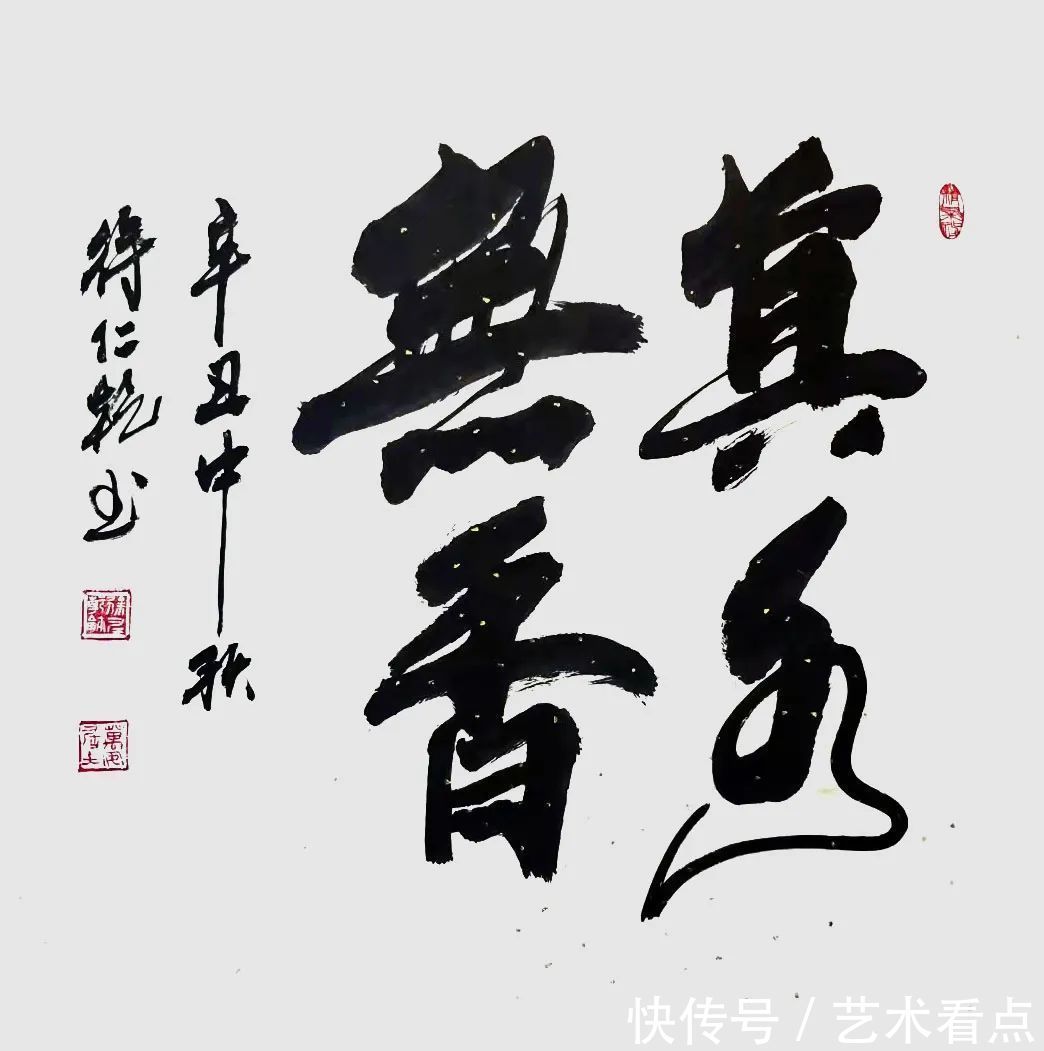 真水
無香
辛丑中秋
仁乾书
快传号 / 艺术看点